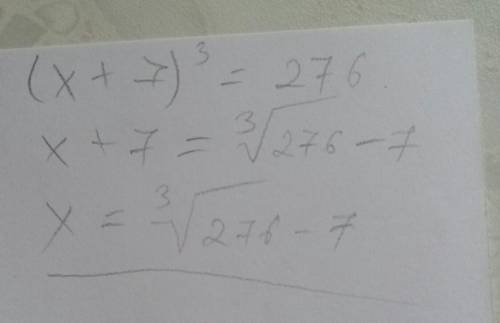 (x + 7)³ = 276
x + 7 = ∛276 - 7
x = ∛276 - 7